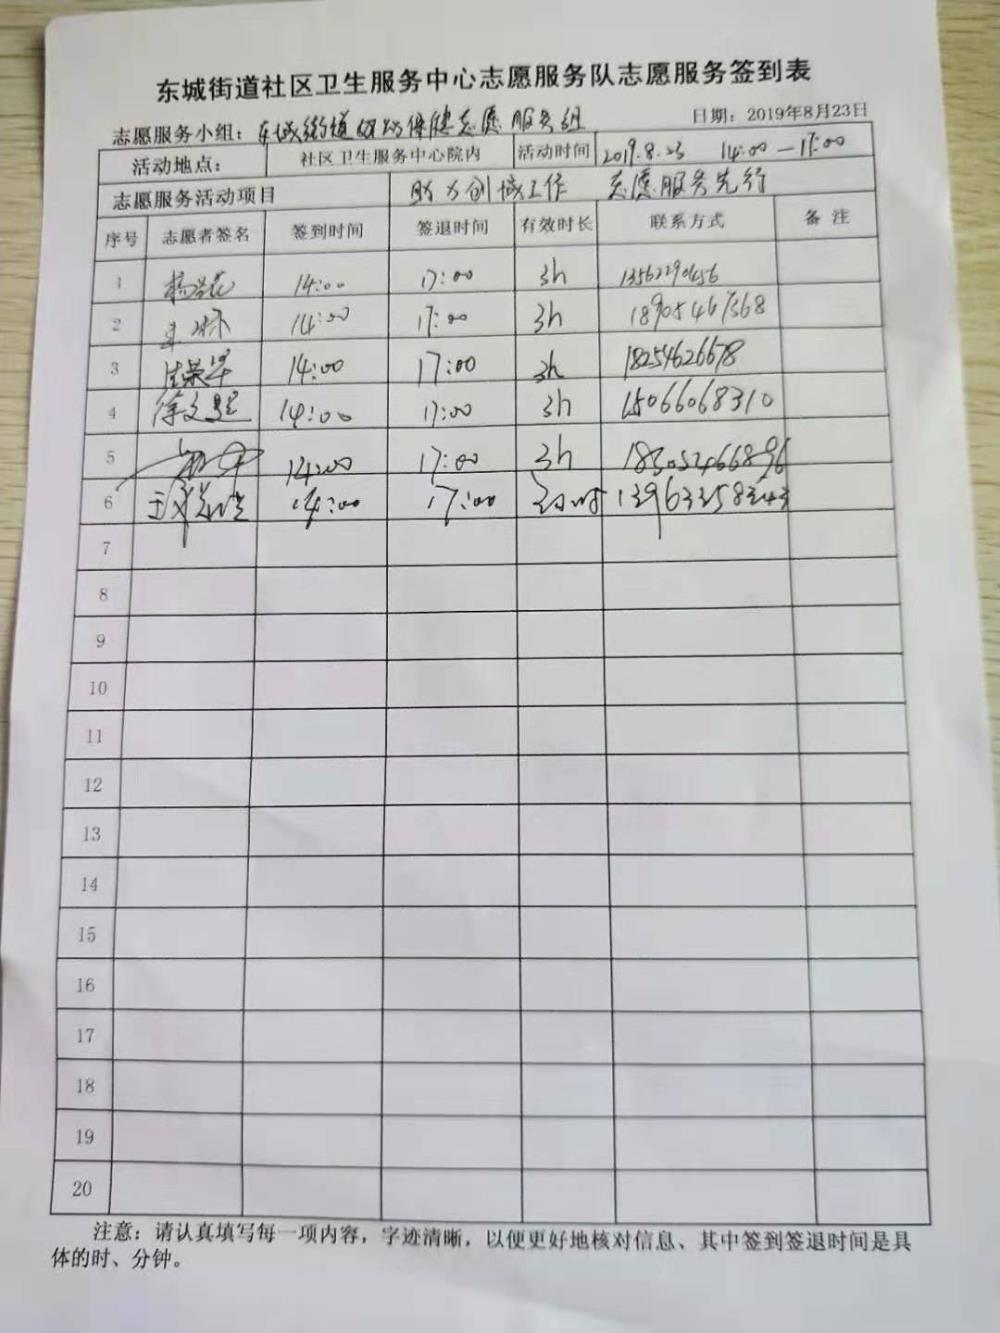 东城街道社区卫生服务中心志愿服务队志愿服务签到表
志愿服务小组：东城街道妇幼保健志愿服务组 日期：2019年8月23日
活动地点： 社区卫生服务中心院内 活动时间 2019.8.23 14:00—17:00
志愿服务活动项目 助力创城工作 志愿服务先行
序号 志愿者签名 签到时间 签退时间 有效时长 联系方式 备注
1 14:00 17:00 3h
2 14:00 17:00 3h 18905467568
3 14:00 17:00 3h 18254626678
4 徐文超 14:00 17:00 3h 15066068310
5 14:00 17:00 3h 18305466896
6 14:00 17:00 3小时
7
8
9
10
11
12
13
14
15
16
17
18
19
20
注意：请认真填写每一项内容，字迹清晰，以便更好地核对信息、其中签到签退时间是具
体的时、分钟。